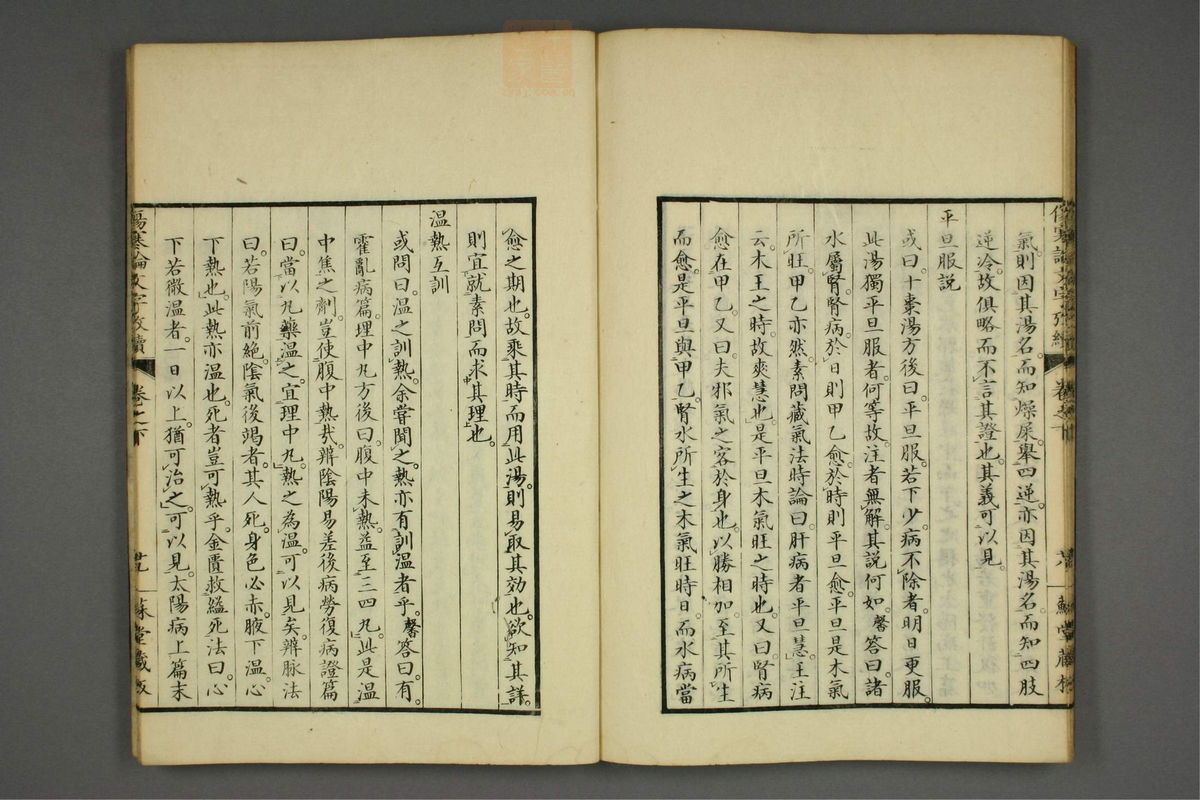 氣則因其湯名而知燥屎舉四逆亦因其湯名而知四肢
逆冷故俱略而不言其證也其義可以見
平旦服説
或曰十棗湯方後曰平旦服若下少病不除者明日更服
此湯獨平旦服者何等故注者無解其説何如馨答曰諸
水屬腎腎病於日則甲乙愈於時則平旦愈平旦是木氣
所旺甲乙亦然素問藏氣法時論曰肝病者平旦慧王注
云木王之時故爽慧也是平旦木氣旺之時也又曰腎病
愈在甲乙又曰夫邪氣之客於身也以勝相加至其所生
而愈是平旦與甲乙腎水所生之木氣旺時日而水病當
愈之期也故乘其時而用此湯則易取其効也欲知其詳
則宜就素問而求其理也
温熱互訓
或問曰温之訓熱余嘗聞之熱亦有訓温者乎馨答曰有
霍亂病篇理中丸方後曰腹中未熱益至三四丸此是温
中焦之劑豈使腹中熱哉辨陰陽易差後病勞復病證篇
曰當以丸藥温之宜理中丸熱之為温可以見矣辨脉法
曰若陽氣前絶陰氣後竭者其人死身色必赤腋下温心
下熱也此熱亦温也死者豈可熱乎金匱救縊死法曰心
下若微温者一日以上猶可治之可以見太陽病上篇末
傷寒論文字攷續
卷之下
廿九
蘇堂藏板